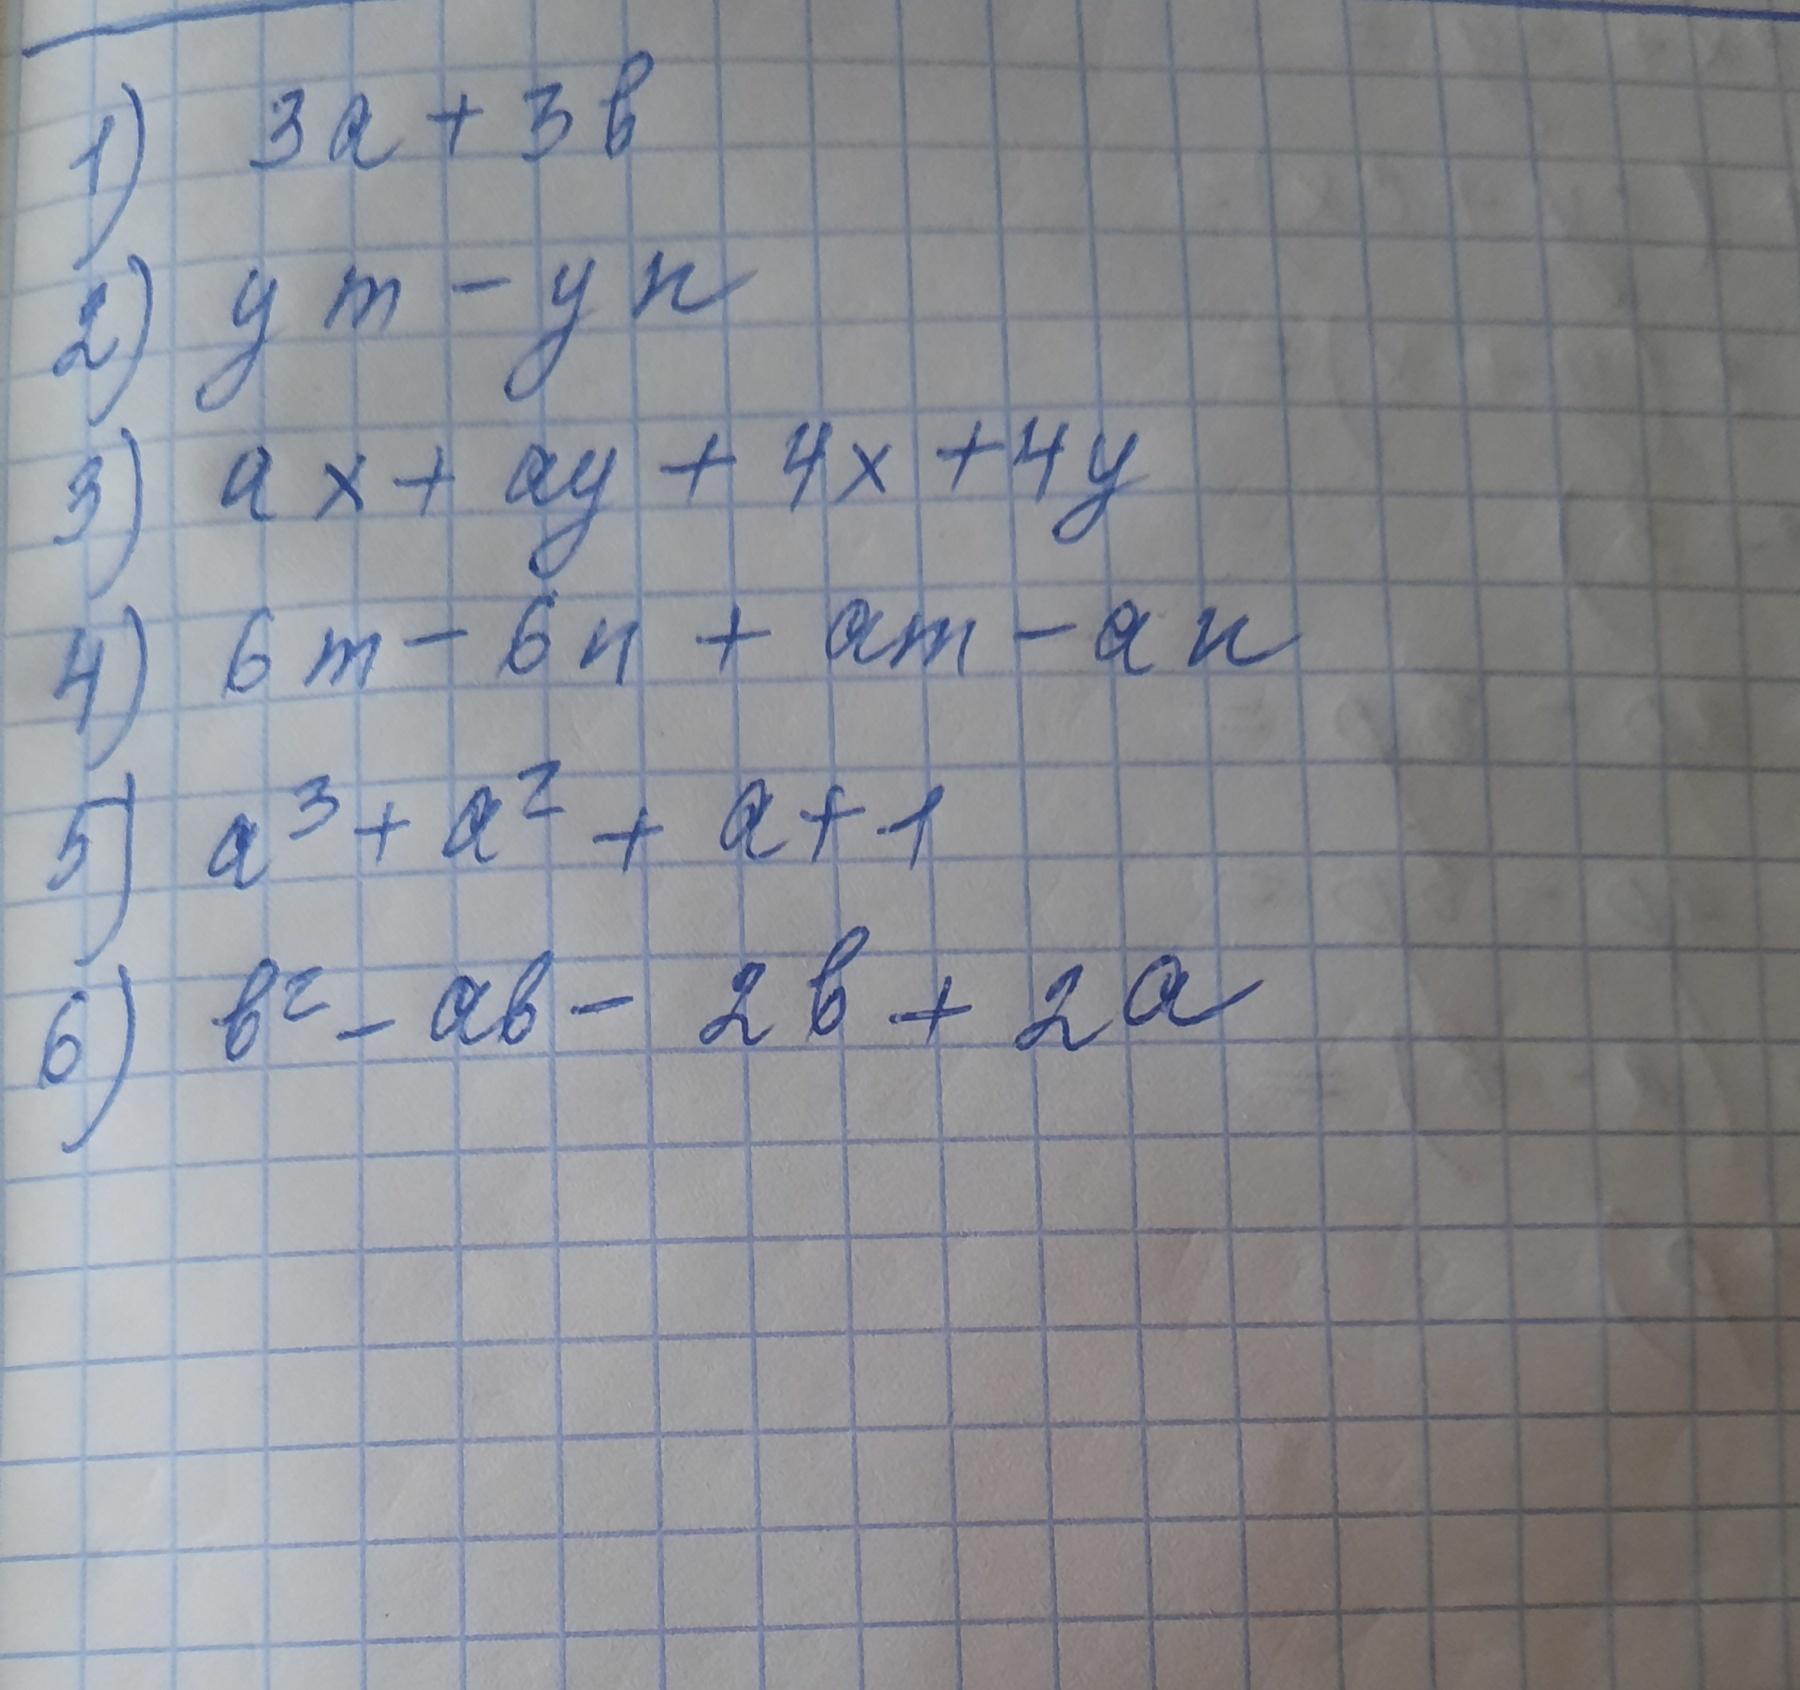 1) 3a + 3b
2) ym - yn
3) ax + ay + 4x + 4y
4) 6m - 6n + am - an
5) a³ + a² + a + 1
6) b² - ab - 2b + 2a